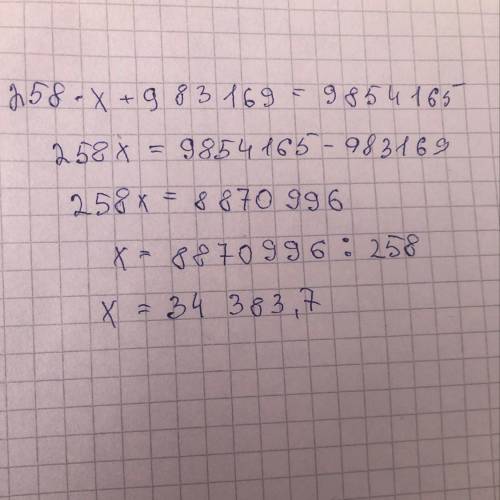 258 · x + 983 169 = 9854165
258x = 9854165 - 983169
258x = 8870996
x = 8870996 : 258
x = 34 383,7